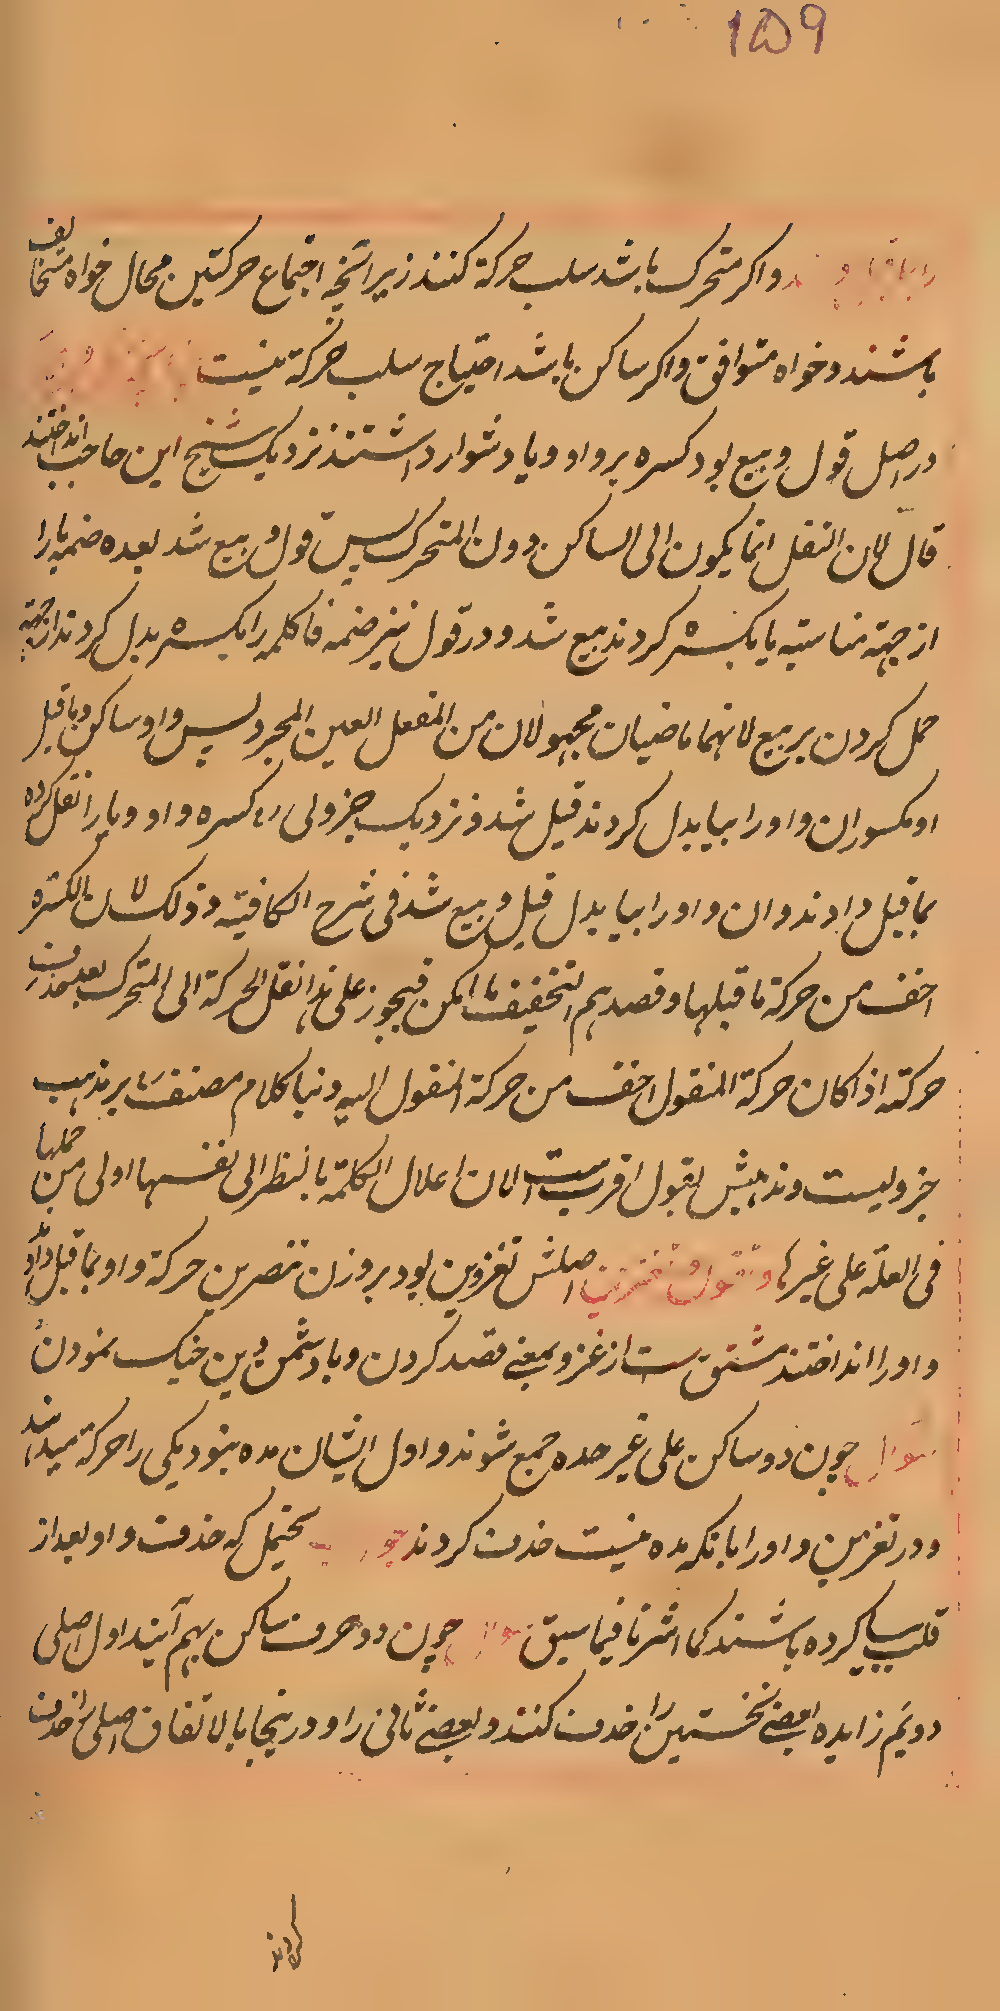 ۱۵۹
واکر متحرک باشد سلب حرکة کنند زیرانچه اجتماع حرکتین محال خواه متخالف
باشند و خواه متوافق و اکر ساکن باشد احتیاج سلب حرکة نیست
در اصل قول و بیع بود کسره بر واو و یا دشوار داشتند نزدیک شیخ ابن حاجب انداختند
قال لان النقل انما یکون الی الساکن دون المتحرک پس قول و بیع شد بعده ضمه یا را
از جهة مناسبة یا بکسره کردند بیع شد و در قول نیز ضمه فا کلمه را بکسره بدل کردند از جهة
حمل کردن بر بیع لانهما ماضیان مجهولان من المعتل العین المجرد پس واو ساکن و ماقبل
او مکسور ان واو را بیا بدل کردند قیل شد و نزدیک جزولی کسره واو و یا را نقل کرده
بماقبل دادند و ان واو را بیا بدل قیل و بیع شد فی شرح الکافیة و ذلک لان الکسرة
اخف من حرکة ما قبلها و قصدهم التخفیف ما امکن فیجوز علی هذا نقل الحرکة الی المتحرک بعد حذف
حرکته اذا کان حرکة المنقول اخف من حرکة المنقول الیه و بنا کلام مصنف بر مذهب
جزولیست و مذهبش بقبول اقربست لان اعلال الکلمة بالنظر الی نفسها اولی من حملها
فی العلة علی غیرها و تقول و تغزین اصلش تغزوین بود بروزن تنصرین حرکة واو بماقبل داد
واو را انداختند مشتق ست از غزو بمعنی قصد کردن و با دشمن دین جنک نمودن
سوال چون دو ساکن علی غیر حده جمع شوند و اول ایشان مده نبود یکی را حرکة میدهند
و در تغزین واو را بانکه مده نیست حذف کردند جواب یحتمل که حذف واو بعد از
قلب بیا کرده باشند کما اشرنا فیما سبق سوال چون دو حرف ساکن بهم آیند اول اصلی
دویم زایده بعضی نخستین را حذف کنند و بعضی ثانی را و درینجا بالاتفاق اصلی را حذف
کردند